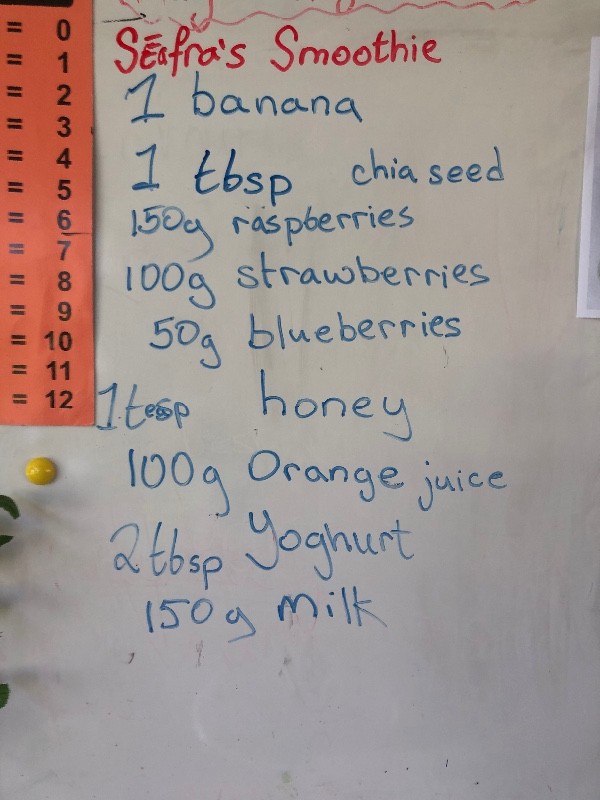 = 0
= 1
= 2
= 3
= 4
= 5
= 6
= 7
= 8
= 9
= 10
= 11
= 12
Sēafra's Smoothie
1 banana
1 tbsp chia seed
150g raspberries
100g strawberries
50g blueberries
1 tesp honey
100g Orange juice
2 tbsp Yoghurt
150g milk